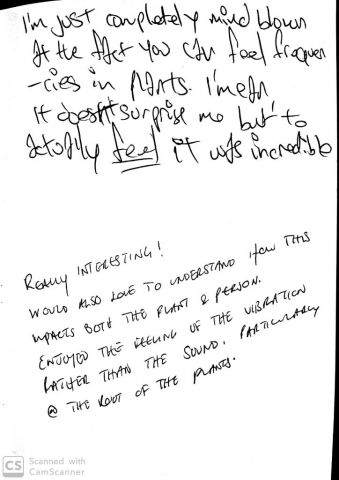 I'm just completely mind blown
at the fact you can feel frequen
-cies in plants. I mean
it doesn't surprise me but to
actually feel it was incredible
REALLY INTERESTING!
WOULD ALSO LOVE TO UNDERSTAND HOW THIS
IMPACTS BOTH THE PLANT & PERSON.
ENJOYED THE FEELING OF THE VIBRATION
RATHER THAN THE SOUND. PARTICULARLY
@ THE ROOT OF THE PLANTS.
CS Scanned with
CamScanner